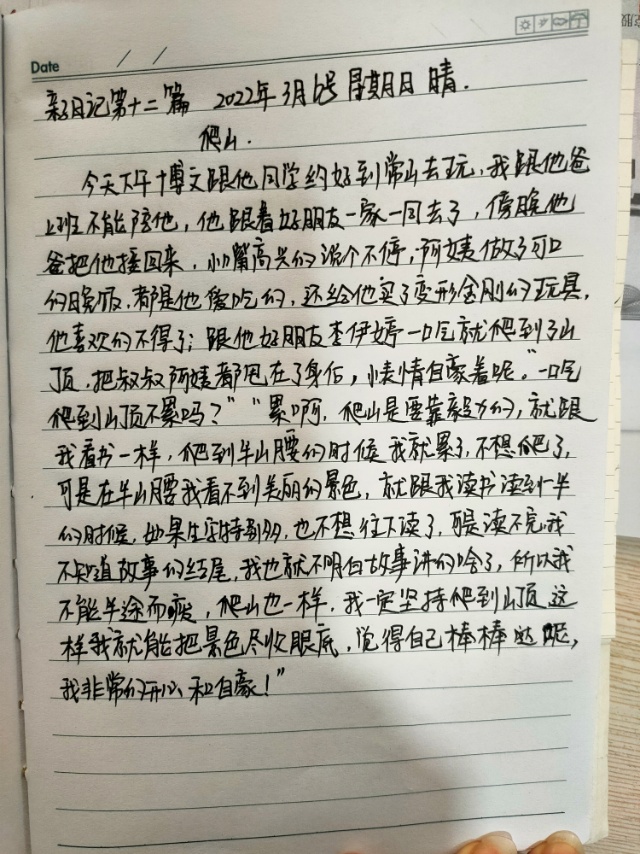 Date / /
亲子日记第十二篇 2022年3月6号 星期日 晴.
爬山.
今天下午博文跟他同学约好到常山去玩,我跟他爸
上班不能陪他,他跟着好朋友一家一同去了,傍晚他
爸把他接回来,小嘴高兴的说个不停,阿姨做了可口
的晚饭,都是他爱吃的,还给他买了变形金刚的玩具,
他喜欢的不得了;跟他好朋友李伊婷一口气就爬到了山
顶,把叔叔阿姨都甩在了身后,表情自豪着呢。"一口气
爬到山顶不累吗?""累啊,爬山是要靠毅力的,就跟
我看书一样,爬到半山腰的时候我就累了,不想爬了,
可是在半山腰我看不到美丽的景色,就跟我读书读到一半
的时候,如果生字特别多,也不想往下读了,可是读不完我
不知道故事的结尾,我也就不明白故事讲的啥了,所以我
不能半途而废,爬山也一样,我一定坚持爬到山顶,这
样我就能把景色尽收眼底,觉得自己棒棒哒呢,
我非常的开心和自豪!"